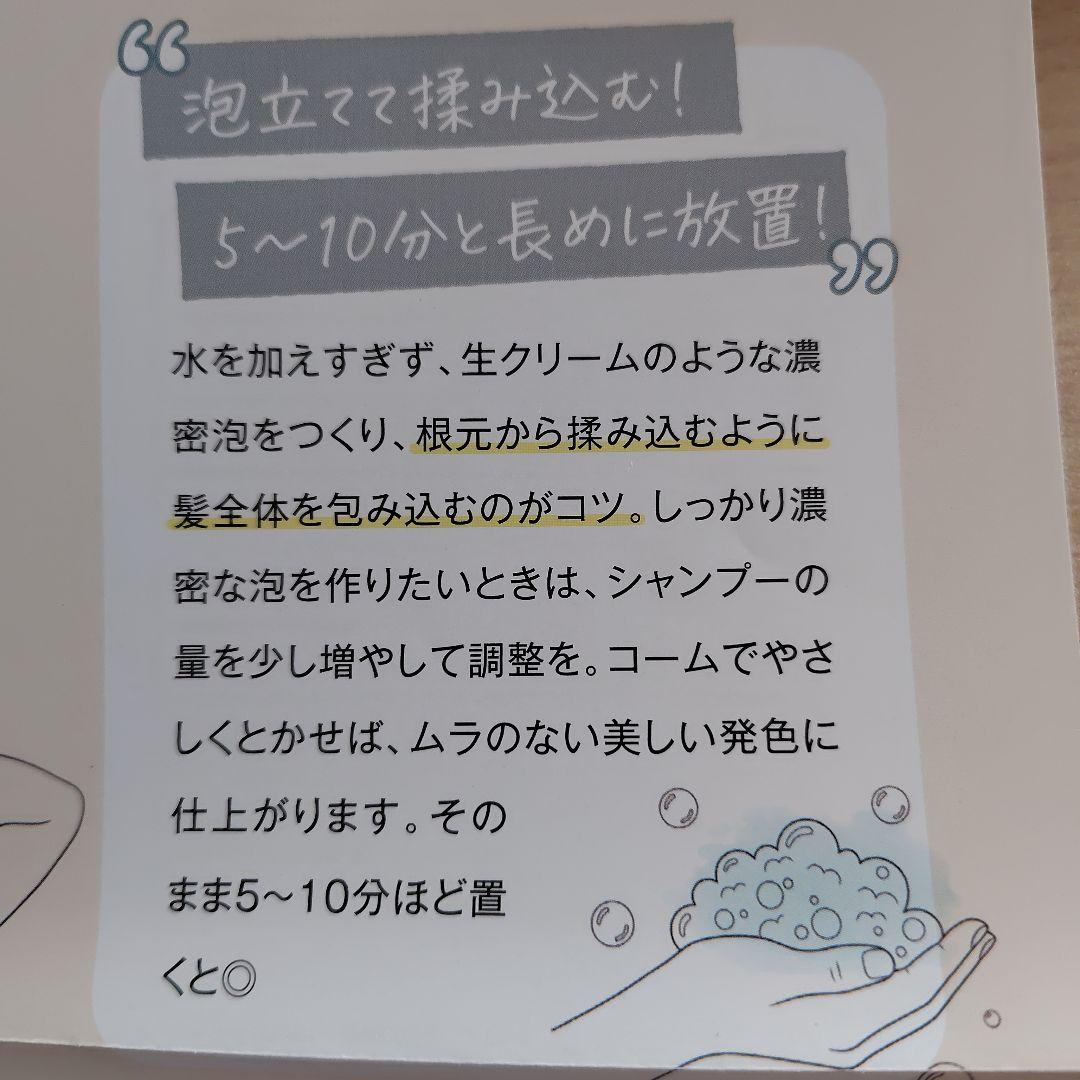 泡立てて揉み込む!
5〜10分と長めに放置!
水を加えすぎず、生クリームのような濃
密泡をつくり、根元から揉み込むように
髪全体を包み込むのがコツ。しっかり濃
密な泡を作りたいときは、シャンプーの
量を少し増やして調整を。コームでやさ
しくとかせば、ムラのない美しい発色に
仕上がります。その
まま5〜10分ほど置
くと◎